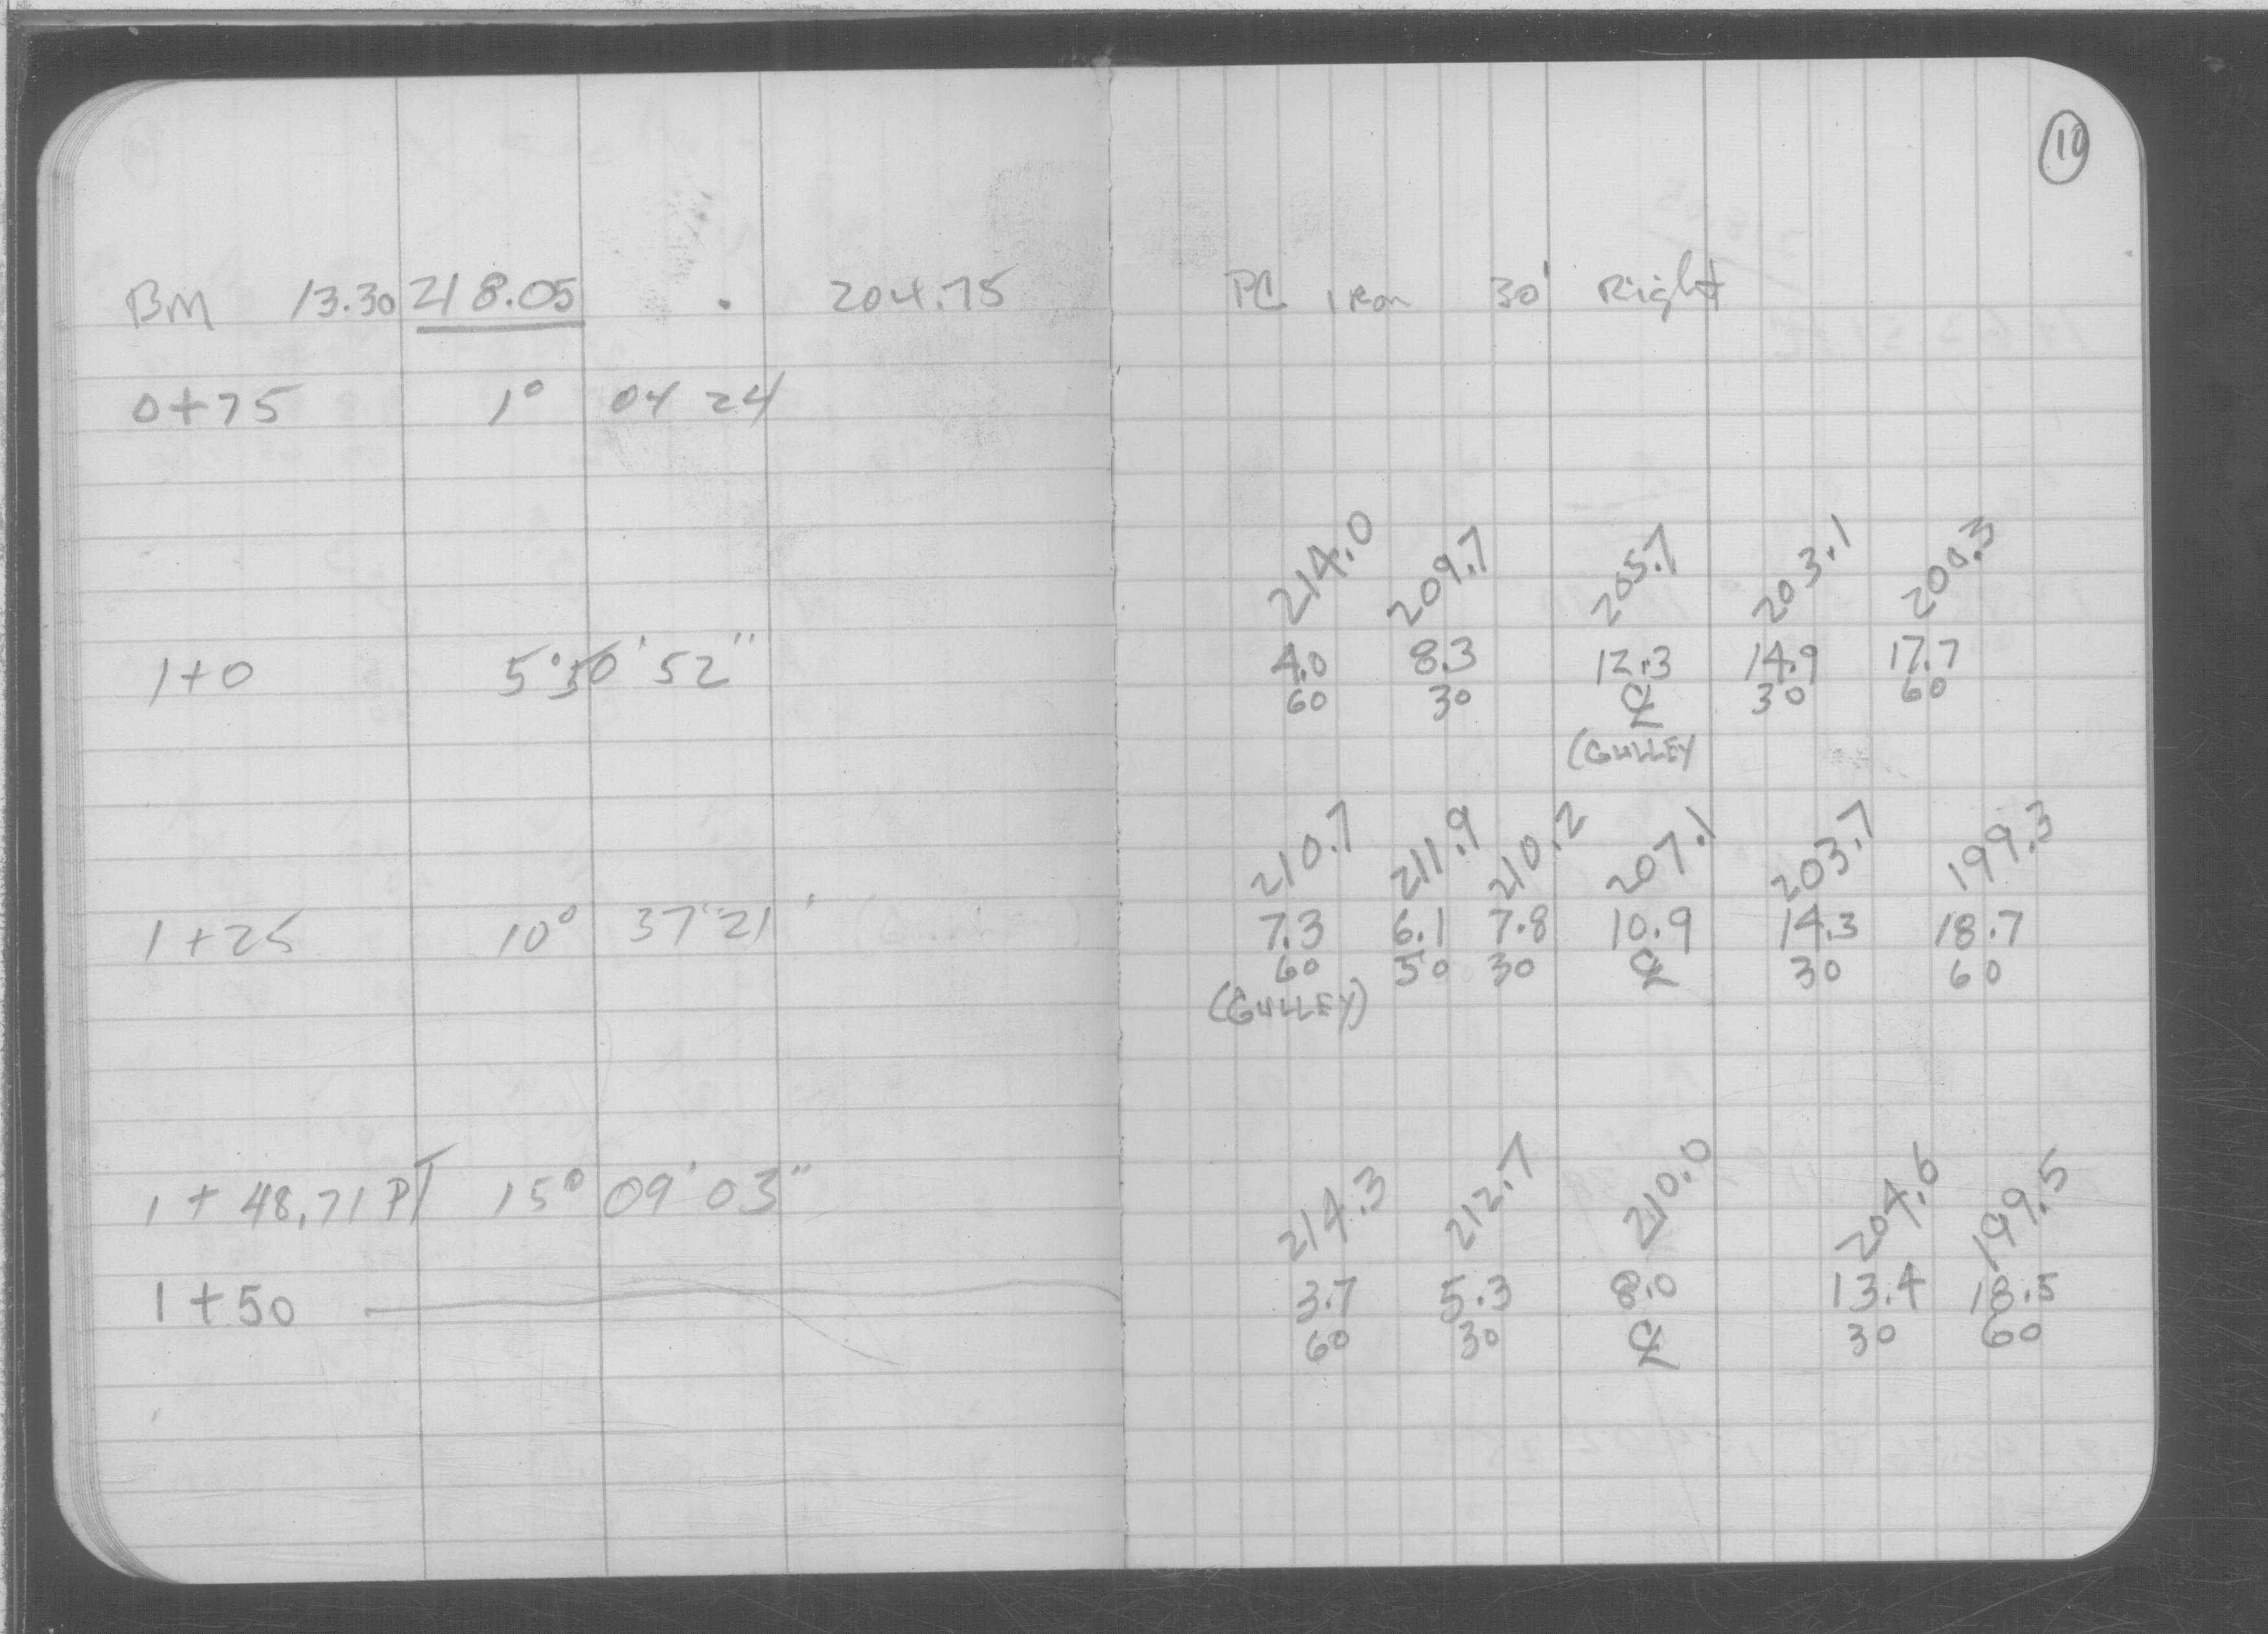 10
BM 13.30 218.05 204.75 PC Iron 30' Right
0+75 1° 04 24
214.0 209.7 205.7 203.1 200.3
1+0 5° 50' 52" 4.0 8.3 12.3 14.9 17.7
60 30 ℄ 30 60
(GULLEY
210.7 211.9 210.2 207.1 203.7 199.3
1+25 10° 37' 21' 7.3 6.1 7.8 10.9 14.3 18.7
60 50 30 ℄ 30 60
(GULLEY)
214.3 212.7 210.0 204.6 199.5
1+48.71 PT 15° 09' 03"
1+50 3.7 5.3 8.0 13.4 18.5
60 30 ℄ 30 60